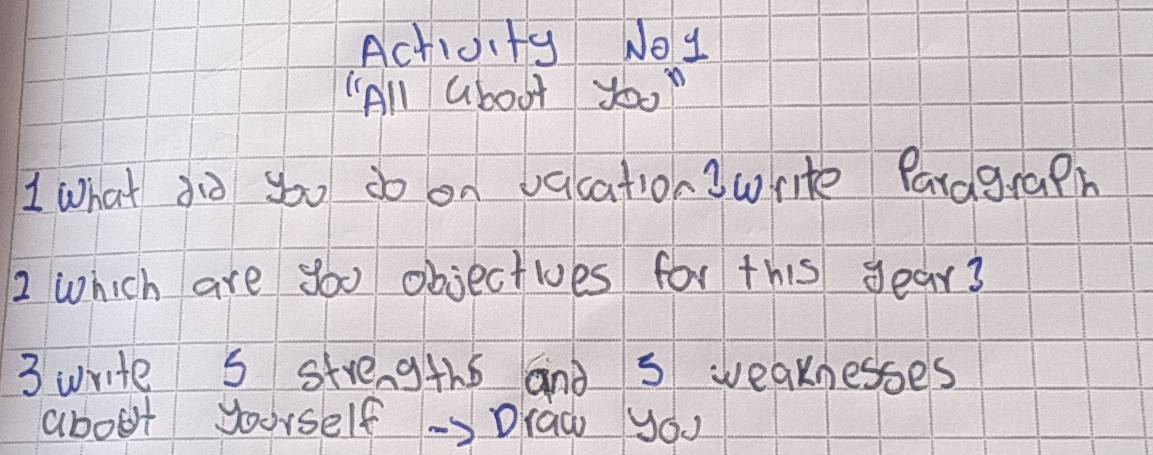 Activity No 1
"All about you"
1 What did you do on vacation? write Paragraph
2 Which are you objectives for this year?
3 write 5 strengths and 5 weaknesses
about yourself -> Draw you